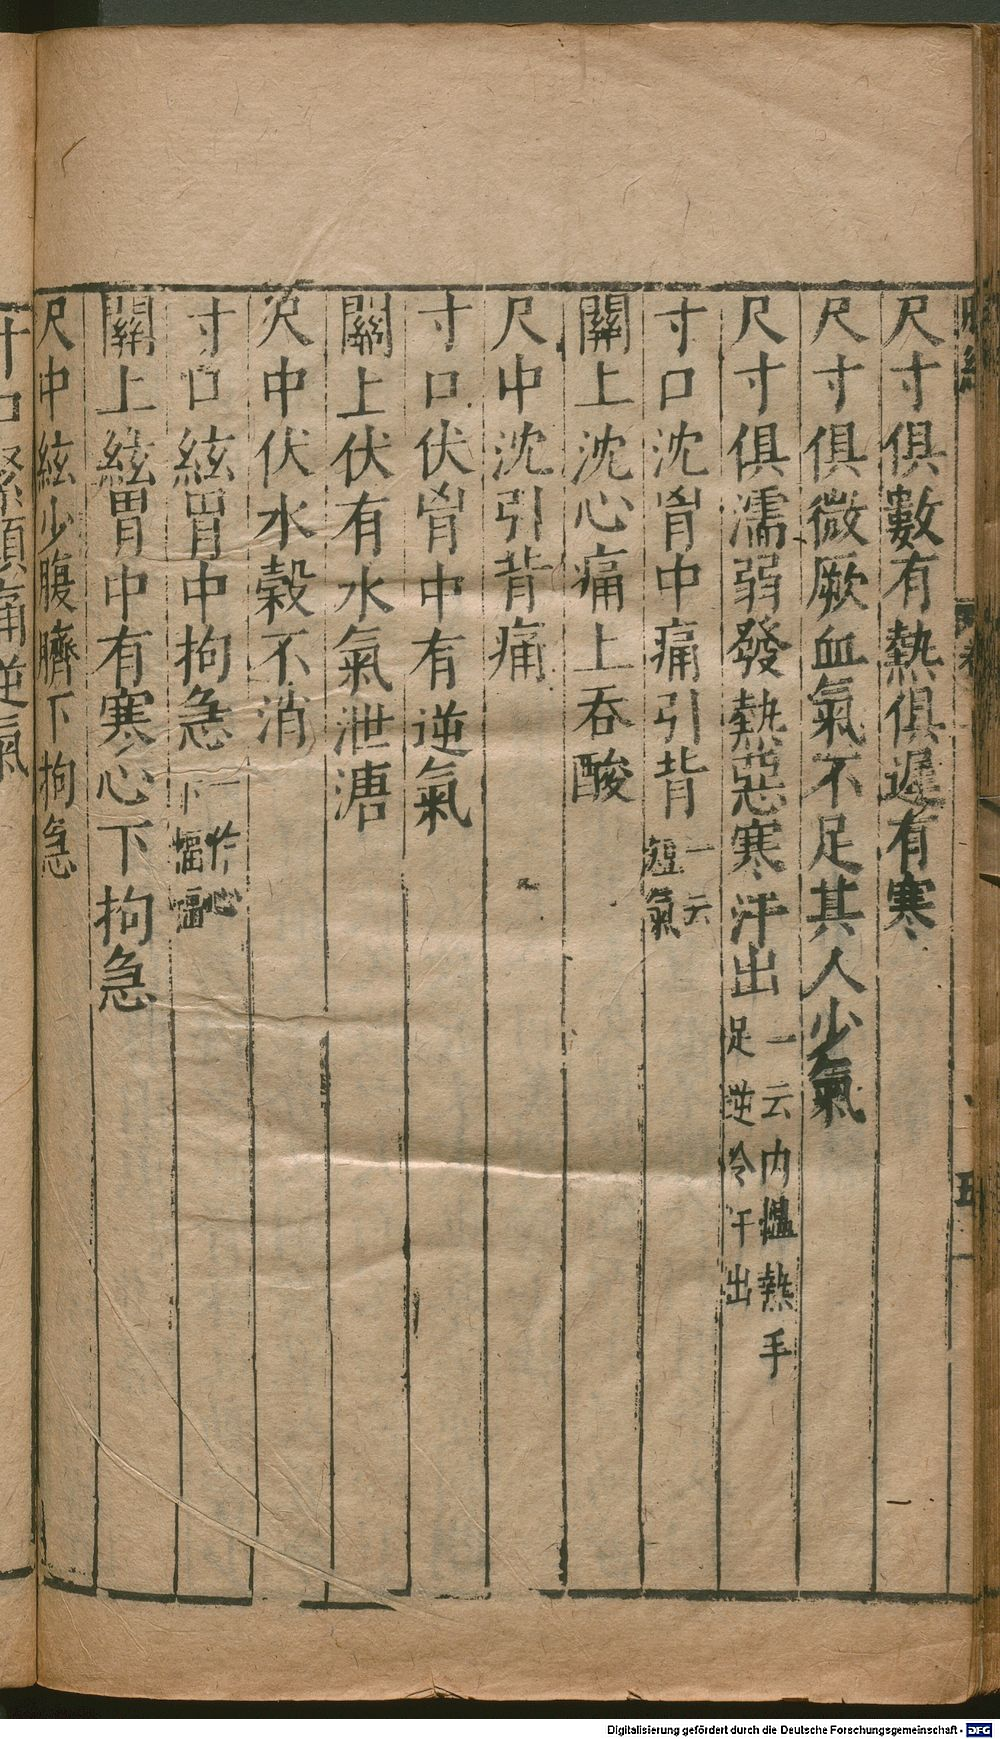 尺寸俱數有熱俱遲有寒
尺寸俱微厥血氣不足其人少氣
尺寸俱濡弱發熱惡寒汗出一云内愠熱手足逆冷汗出
寸口沈胷中痛引背一云短氣
關上沈心痛上吞酸
尺中沈引背痛
寸口伏胷中有逆氣
關上伏有水氣泄溏
尺中伏水穀不消
寸口絃胃中拘急一作心下愊愊
關上絃胃中有寒心下拘急
尺中絃少腹臍下拘急
寸口緊頭痛逆氣
Digitalisierung gefördert durch die Deutsche Forschungsgemeinschaft - DFG